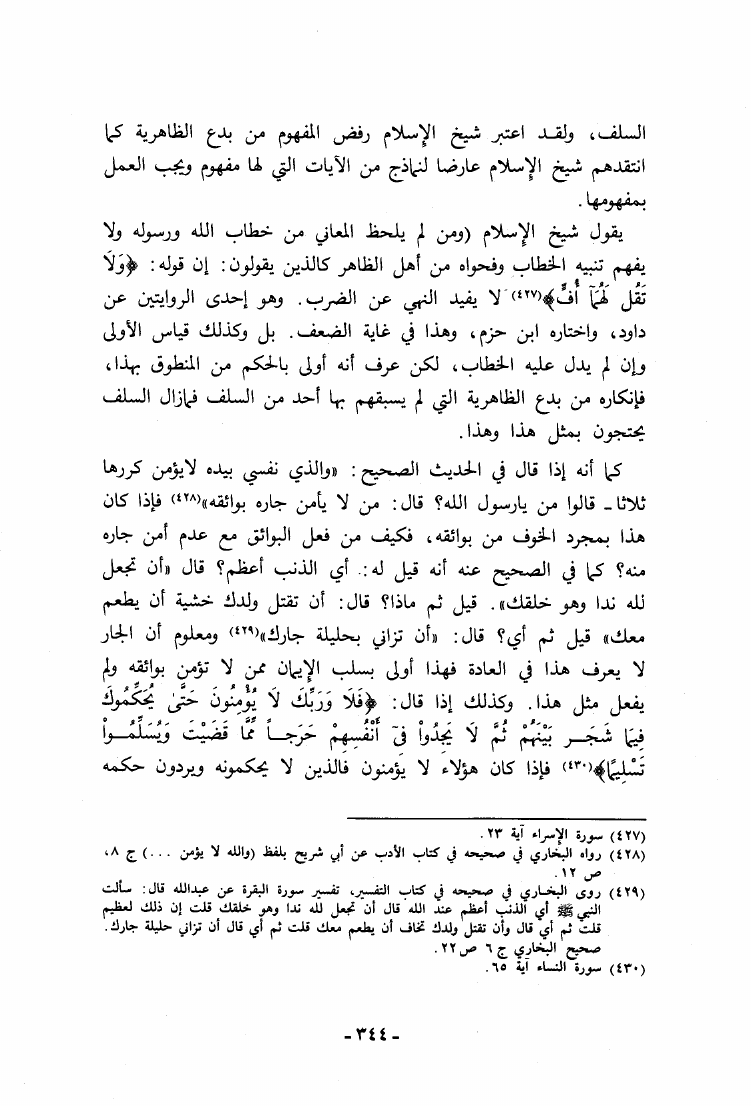 السلف، ولقد اعتبر شيخ الإسلام رفض المفهوم من بدع الظاهرية كما
انتقدهم شيخ الإسلام عارضا لنماذج من الآيات التي لها مفهوم ويجب العمل
بمفهومها.
يقول شيخ الإسلام (ومن لم يلحظ المعاني من خطاب الله ورسوله ولا
يفهم تنبيه الخطاب وفحواه من أهل الظاهر كالذين يقولون: إن قوله: ﴿وَلَا
تَقُل لَّهُمَآ أُفٍّ﴾(٤٢٧) لا يفيد النهي عن الضرب. وهو إحدى الروايتين عن
داود، واختاره ابن حزم، وهذا في غاية الضعف. بل وكذلك قياس الأولى
وإن لم يدل عليه الخطاب، لكن عرف أنه أولى بالحكم من المنطوق بهذا،
فإنكاره من بدع الظاهرية التي لم يسبقهم بها أحد من السلف فمازال السلف
يحتجون بمثل هذا وهذا.
كما أنه إذا قال في الحديث الصحيح: «والذي نفسي بيده لايؤمن كررها
ثلاثا ـ قالوا من يارسول الله؟ قال: من لا يأمن جاره بوائقه»(٤٢٨) فإذا كان
هذا بمجرد الخوف من بوائقه، فكيف من فعل البوائق مع عدم أمن جاره
منه؟ كما في الصحيح عنه أنه قيل له: أي الذنب أعظم؟ قال «أن تجعل
لله ندا وهو خلقك». قيل ثم ماذا؟ قال: أن تقتل ولدك خشية أن يطعم
معك» قيل ثم أي؟ قال: «أن تزاني بحليلة جارك»(٤٢٩) ومعلوم أن الجار
لا يعرف هذا في العادة فهذا أولى بسلب الإيمان ممن لا تؤمن بوائقه ولم
يفعل مثل هذا. وكذلك إذا قال: ﴿فَلَا وَرَبِّكَ لَا يُؤْمِنُونَ حَتَّىٰ يُحَكِّمُوكَ
فِيمَا شَجَرَ بَيْنَهُمْ ثُمَّ لَا يَجِدُواْ فِىٓ أَنْفُسِهِمْ حَرَجاً مِّمَّا قَضَيْتَ وَيُسَلِّمُواْ
تَسْلِيمًا﴾(٤٣٠) فإذا كان هؤلاء لا يؤمنون فالذين لا يحكمونه ويردون حكمه
(٤٢٧) سورة الإسراء آية ٢٣.
(٤٢٨) رواه البخاري في صحيحه في كتاب الأدب عن أبي شريح بلفظ (والله لا يؤمن ...) ج ٨،
ص ١٢.
(٤٢٩) روى البخاري في صحيحه في كتاب التفسير، تفسير سورة البقرة عن عبدالله قال: سألت
النبي ﷺ أي الذنب أعظم عند الله قال أن تجعل لله ندا وهو خلقك قلت إن ذلك لعظيم
قلت ثم أي قال وأن تقتل ولدك تخاف أن يطعم معك قلت ثم أي قال أن تزاني حليلة جارك.
صحيح البخاري ج ٦ ص ٢٢.
(٤٣٠) سورة النساء آية ٦٥.
- ٣٤٤ -